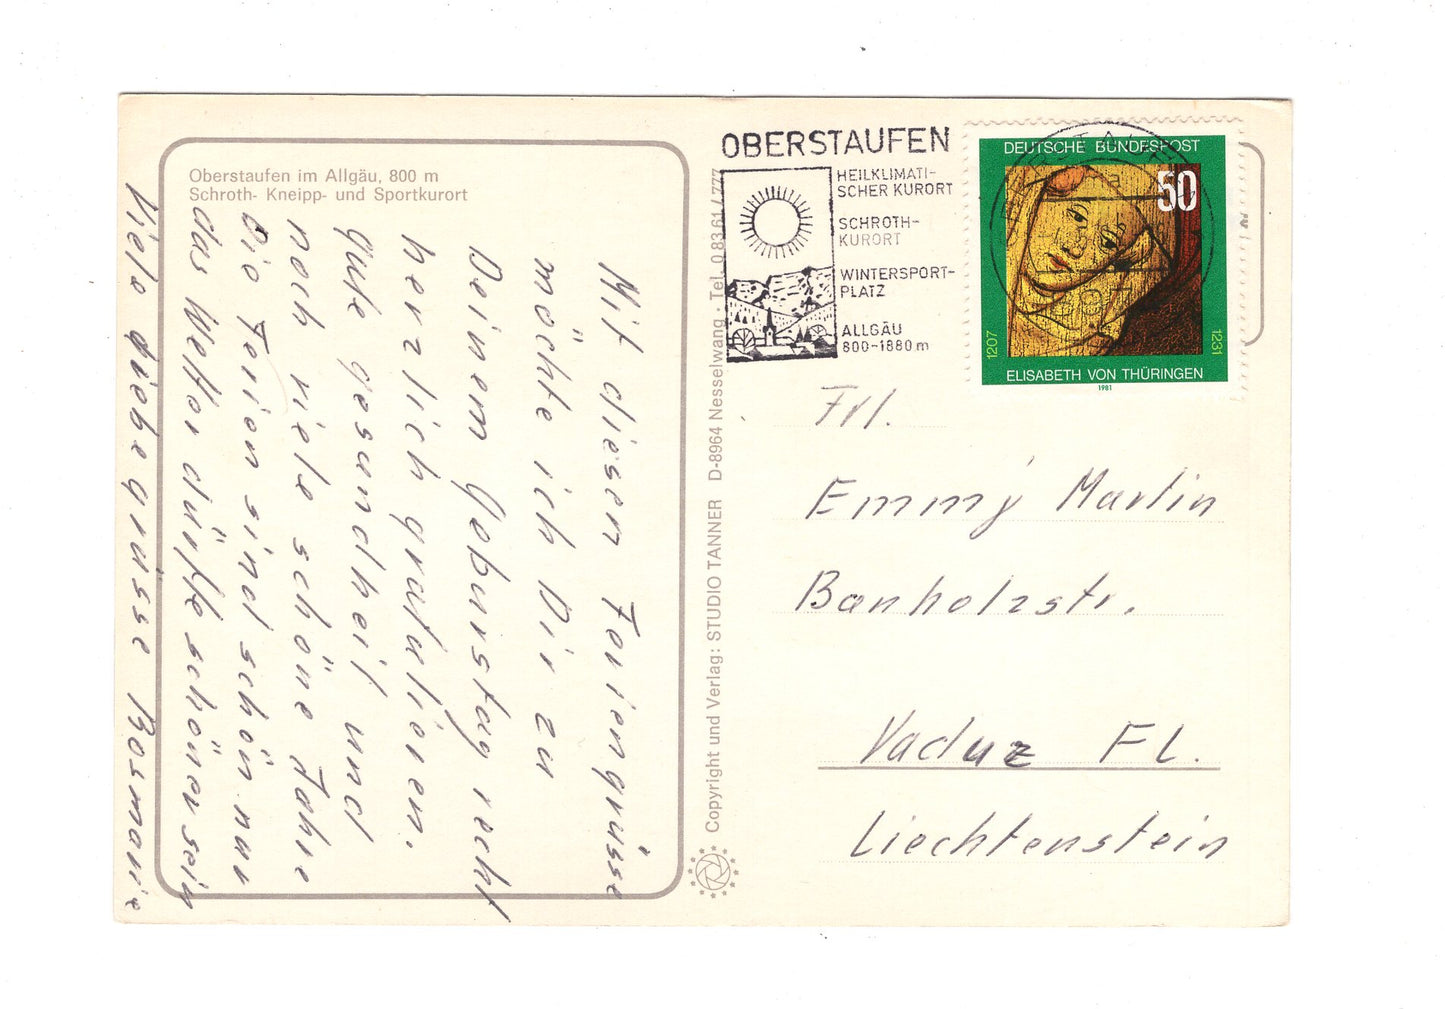 Oberstaufen im Allgäu, 800 m
Schroth- Kneipp- und Sportkurort
Mit diesen Feriengrüsse
möchte ich Dir zu
Deinem Geburstag recht
herzlich gratulieren.
gute gesundheit und
noch viele schöne Jahre
Die Ferien sind schön nur
das Wetter dürfte schöner sein
Viele liebe grüsse Rosmarie
Copyright und Verlag: STUDIO TANNER D-8964 Nesselwang · Tel. 0 83 61 / 777
OBERSTAUFEN
HEILKLIMATI-
SCHER KURORT
SCHROTH-
KURORT
WINTERSPORT-
PLATZ
ALLGÄU
800-1880 m
DEUTSCHE BUNDESPOST
50
1207
1231
ELISABETH VON THÜRINGEN
1981
Frl.
Emmy Martin
Banholzstr.
Vaduz FL.
Liechtenstein